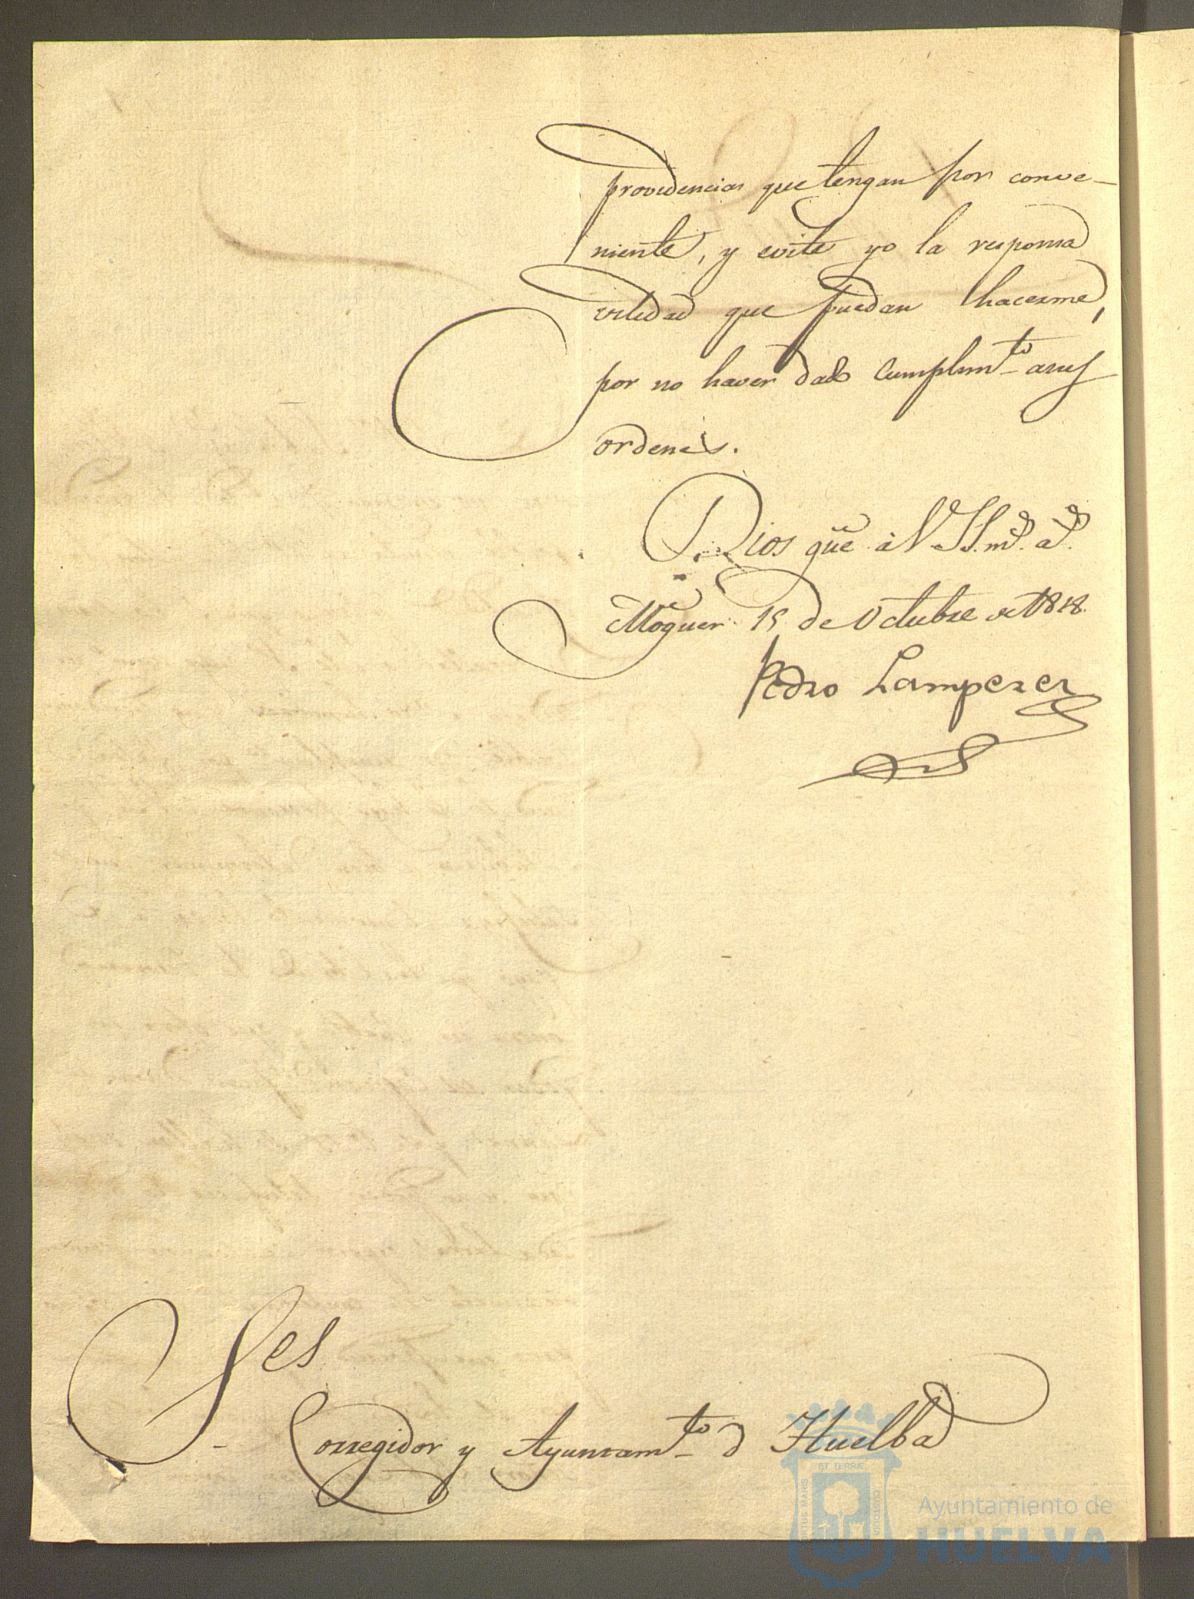 providencias que tengan por conve-
niente, y evite yo la responsa
vilidad que puedan hacerme,
por no haver dado cumplimto. asus
ordenes.
Dios gue. à V.SS. ms. as.
Moguer 15 de Octubre de 1818.
Pedro Lamperez
Ses
Corregidor y Ayuntamto. d Huelba
Ayuntamiento de
HUELVA